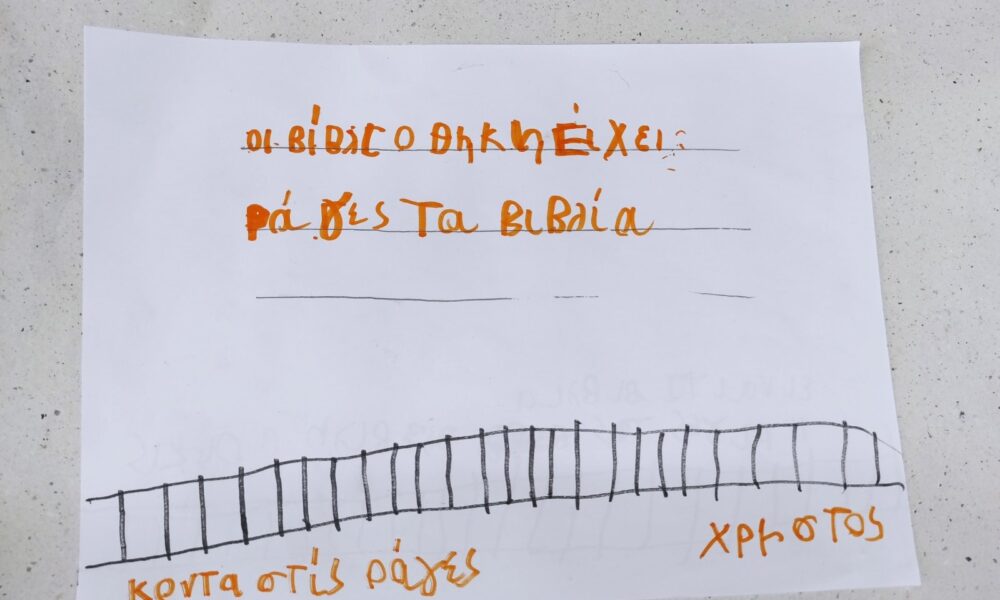 οι βίβλιοθηκη έιχει
ράγες Τα βιβλία
κοντα στίς ράγες
χρηστος